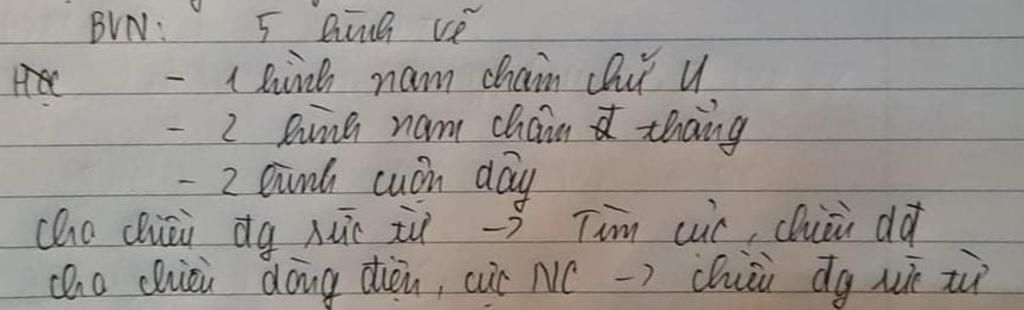 BVN: 5 hình vẽ
Học - 1 hình nam châm chữ U
- 2 hình nam châm thẳng
- 2 hình cuộn dây
cho chiều đg sức từ -> Tìm cực, chiều dđ
cho chiều dòng điện, cực NC -> chiều đg sức từ